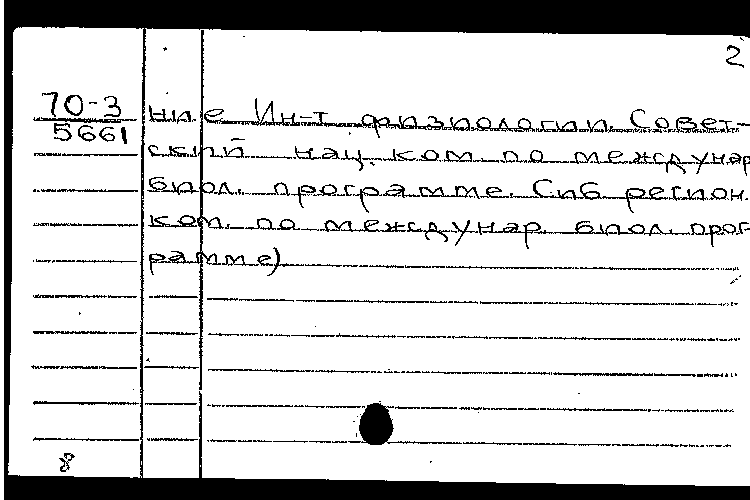 2
70-3
5661
ние Ин-т физиологии. Совет-
ский нац. ком. по междунар.
биол. программе. Сиб регион.
ком. по междунар. биол. прог
рамме).
8